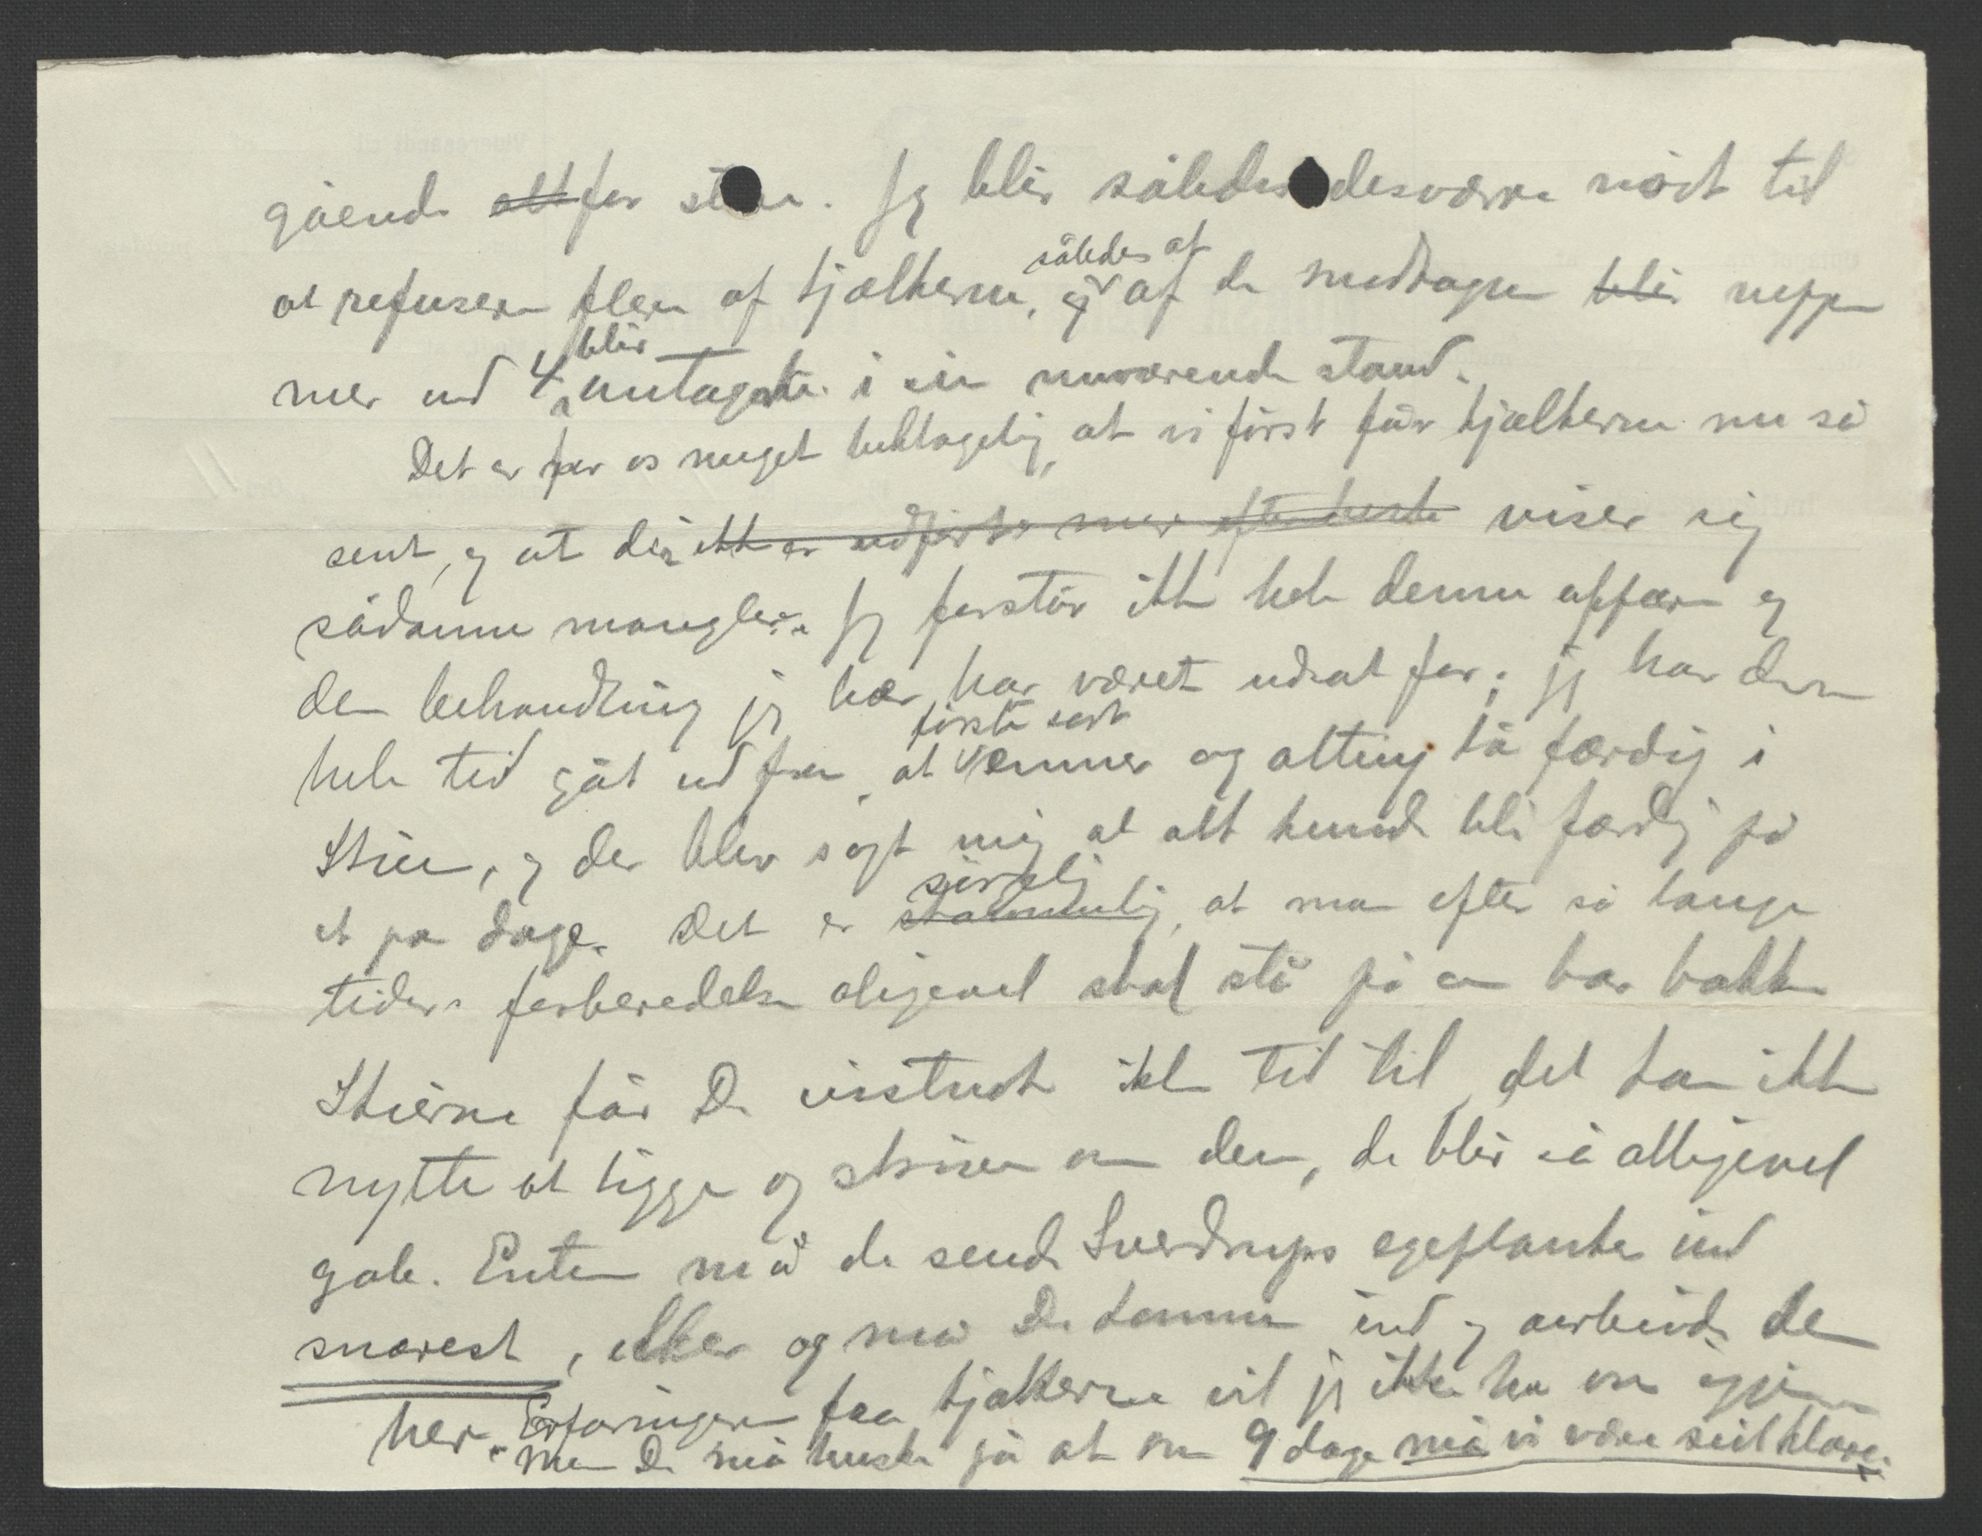 gående altfor store. Jeg blir således desværre nødt til
at refusere flere af kjælkerne, således at af de medtagne blir neppe
mer end 4 blir antagete i sin nuværende stand.
Det er for os meget beklagelig, at vi først får kjælkerne nu så
sent, og at der ikke er udført mer efter viser sig
sådanne mangler. Jeg forstår ikke hele denne affære og
den behandling jeg her har været udsat for; jeg har den
hele tid gåt ud fra, at første sort emner og alting lå færdig i
Skien, og der blev sagt mig at alt kunde bli færdig på
et par dage. Det er skammelig sørgelig, at man efter så lange
tiders forberedelse aligevel skal stå på en bar bakke
Skierne får De visstnok ikke tid til, det kan ikke
nytte at ligge og skrive om dem, de blir så alligevel
gale. Enten må de sende Sverdrups egeplanker ind
snarest, eller og må De komme ind og arbeide dem
her. Erfaringerne fra kjælkerne vil jeg ikke ha om igjen
men De må huske på at om 9 dage må vi være seilklare.